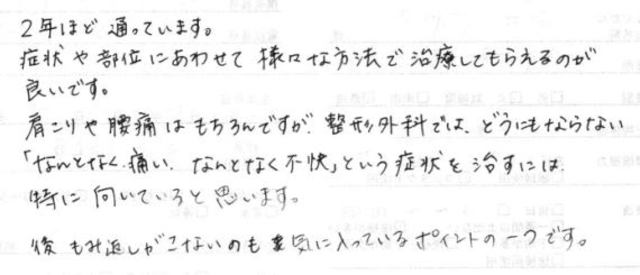 2年ほど通っています。
症状や部位にあわせて様々な方法で治療してもらえるのが
良いです。
肩こりや腰痛はもちろんですが、整形外科では、どうにもならない
「なんとなく痛い、なんとなく不快」という症状を治すには
特に向いていると思います。
後もみ返しがこないのも気に入っているポイントの一つです。